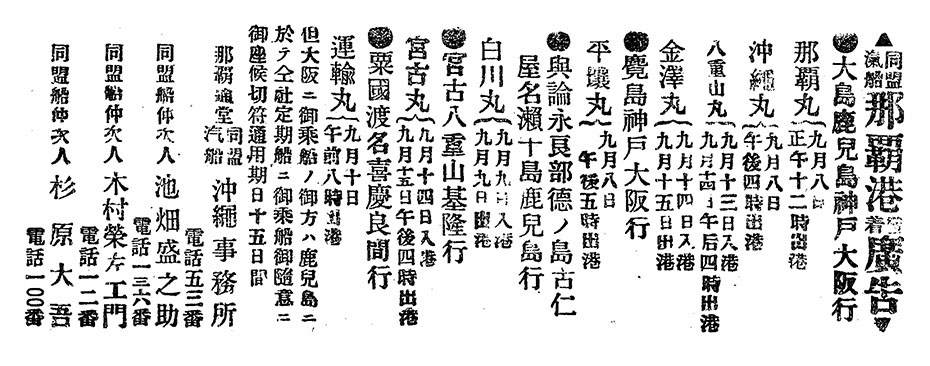 ▲同盟汽船那覇港発着廣告▼
●大島鹿兒島神戸大阪行
那覇丸 九月八日 正午十二時出港
沖繩丸 九月八日 午後四時出港
八重山丸 九月十三日入港 九月十四日午后四時出港
金澤丸 九月十四日入港 九月十五日出港
●鹿島神戸大阪行
平壤丸 九月八日 午後五時出港
●與論永良部德ノ島古仁
屋名瀬十島鹿兒島行
白川丸 九月九日入港 九月九日出港
●宮古八重山基隆行
宮古丸 九月十四日入港 九月十五日午後四時出港
●粟國渡名喜慶良間行
運輸丸 九月十日 午前八時出港
但大阪ニ御乘船ノ御方ハ鹿兒島ニ
於テ仝社定期船ニ御乘船御隨意ニ
御座候切符通用期日十五日間
那覇通堂 同盟汽船 沖繩事務所
電話五三番
同盟船仲次人 池畑盛之助
電話一三六番
同盟船仲次人 木村榮左工門
電話一一二番
同盟船仲次人 杉原大吾
電話一〇〇番